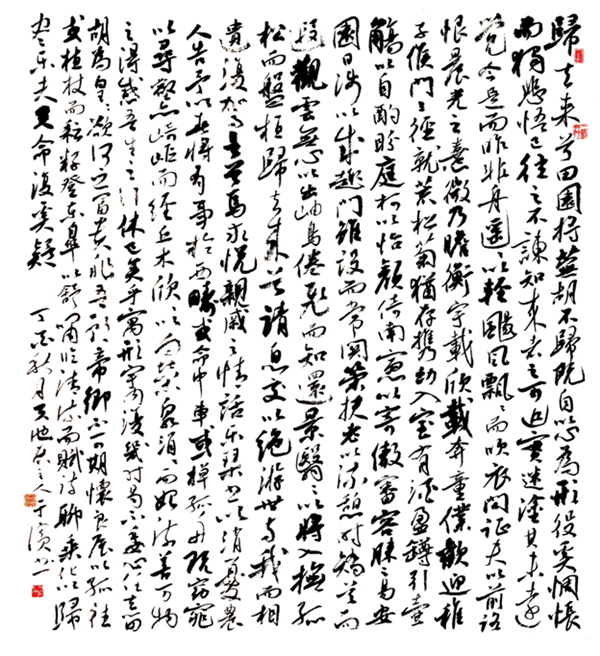 歸去來兮田園將蕪胡不歸既自以心為形役奚惆悵
而獨悲悟已往之不諫知來者之可追實迷塗其未遠
覺今是而昨非舟遙遙以輕颺風飄飄而吹衣問征夫以前路
恨晨光之熹微乃瞻衡宇載欣載奔童僕歡迎稚
子候門三徑就荒松菊猶存攜幼入室有酒盈罇引壺
觴以自酌眄庭柯以怡顏倚南窗以寄傲審容膝之易安
園日涉以成趣門雖設而常關策扶老以流憩時矯首而
遐觀雲無心以出岫鳥倦飛而知還景翳翳以將入撫孤
松而盤桓歸去來兮請息交以絕游世與我而相
遺復駕言兮焉求悅親戚之情話樂琴書以消憂農
人告予以春將有事於西疇或命巾車或棹孤舟既窈窕
以尋壑亦崎嶇而經丘木欣欣以向榮泉涓涓而始流善萬物
之得感吾生之行休已矣乎寓形宇內復幾時曷不委心任去留
胡為皇欲何之富貴非吾願帝鄉不可期懷良辰以孤往
或植杖而耘耔登東皋以舒嘯臨清流而賦詩聊乘化以歸
盡樂夫天命復奚疑 丁酉秋月